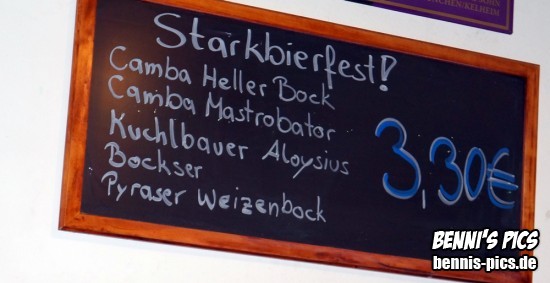 Starkbierfest!
Camba Heller Bock
Camba Mastrobator
Kuchlbauer Aloysius
Bockser
Pyraser Weizenbock
3,30€
BENNI'S PICS
bennis-pics.de